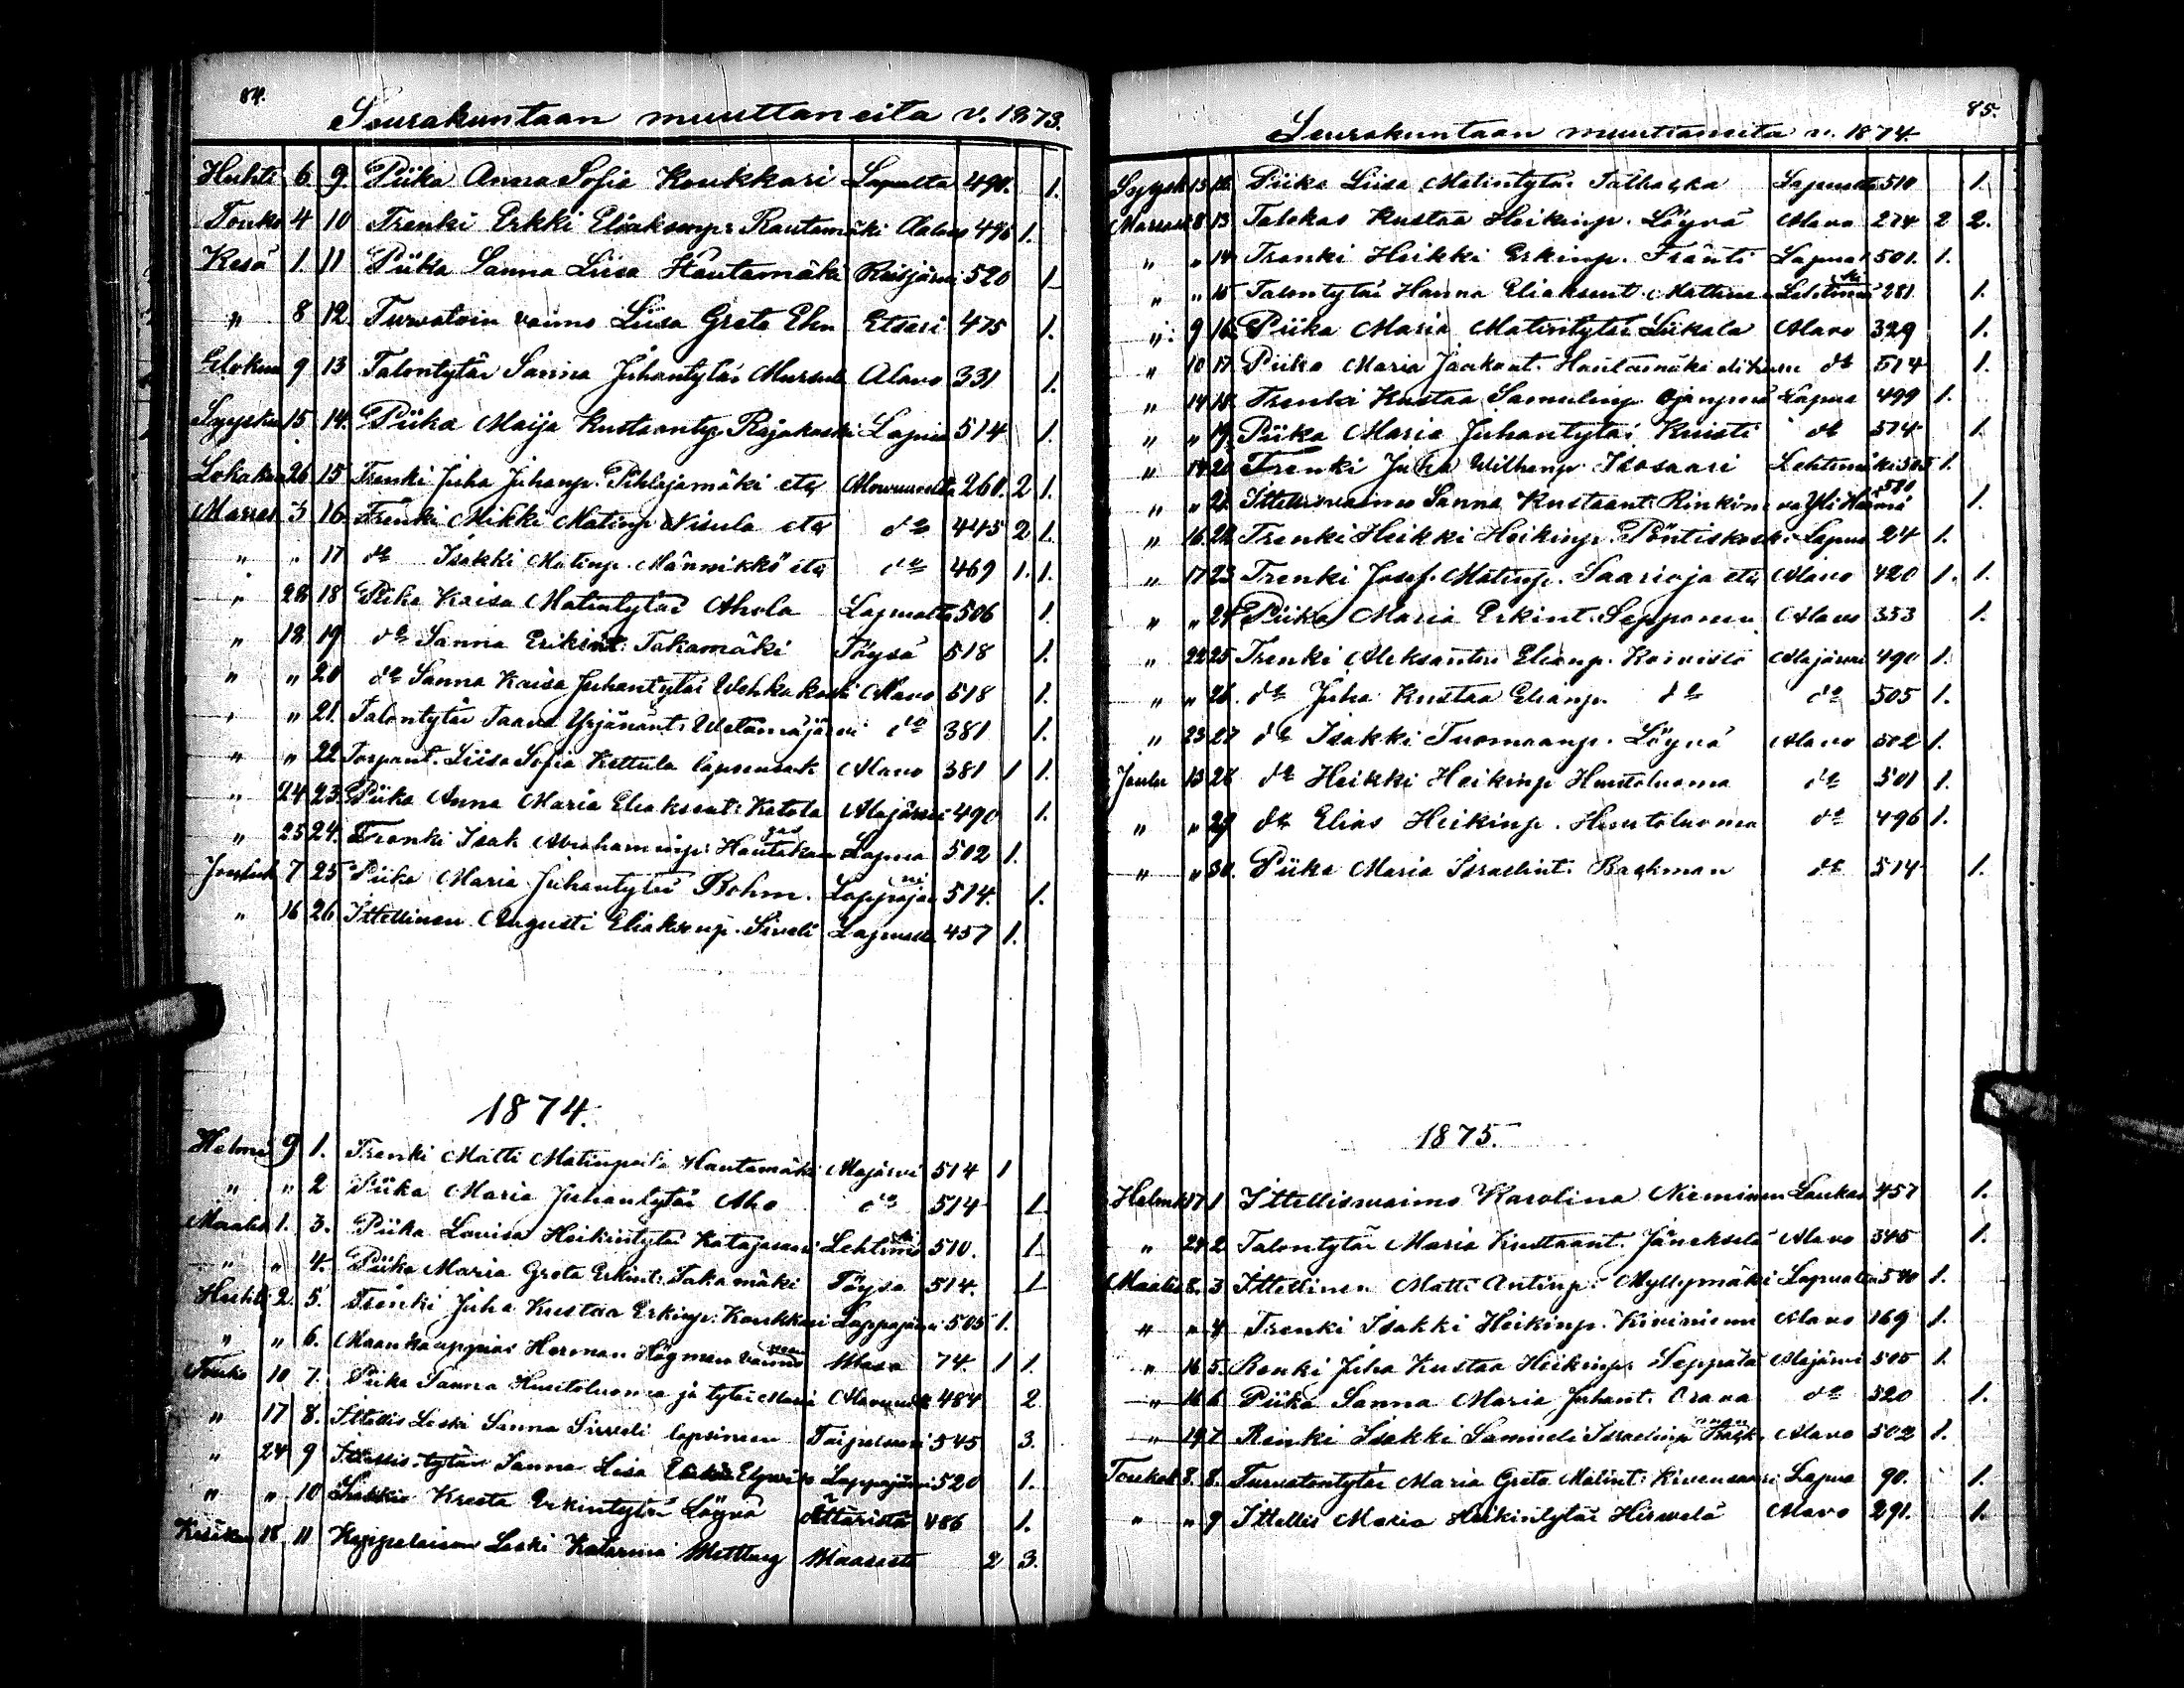 84.
Seurakuntaan muuttaneita v. 1873.
Huhti 6 9 Piika Anna Sofia Koukkari Lapualta 490. 1.
Touko 4 10 Trenki Erkki Eliaksenp. Rautamäki Alavo 496 1.
Kesä 1. 11 Piika Sanna Liisa Hautamäki 520 1
" 8 12 Turvatoin vaimo Liisa Greta Etseri 475 1.
Elokuu 9 13 Talontytär Sanna Juhantytär Alavo 331 1.
Syysku 15 14. Piika Maija Kustaantyr Rajakoski Lapua 514 1.
Lokakuu 26 15 Trenki Juha Juhanp. Pihlajamäki etc Alavuudelta 260. 2 1.
Marras 3 16. Trenki Mikki Matinp Nisula etc do 445 2 1.
" " 17 do Isakki Matinp. Männikkö etc do 469 1. 1.
" 28 18 Piika Kaisa Matintytär Ahola Lapualta 506 1.
" 18 19 do Sanna Erikint. Takamäki Töysä 518 1.
" " 20 do Sanna Kaisa Juhantytär Alavo 518 1.
" " 21. Talontytär Taava Yrjänänt. do 381 1.
" " 22 Torpant. Liisa Sofia Kettula Alavo 381 1 1.
" 24 23. Piika Anna Maria Eliaksent. Ketola Alajärvi 490 1.
" 25 24. Trenki Isak Abrahaminp. Hautakangas Lapua 502 1.
Jouluk 7 25 Piika Maria Juhantytär Bohm. Lappajärvi 514. 1.
" 16 26. Ittellinen Augusti Eliaksenp. Siveli Lapualta 457 1.
1874.
Helmi 9 1. Trenki Matti Matinpoika Hautamäki Alajärvi 514 1
" " 2 Piika Maria Juhantytär Aho do 514 1
Maalis 1. 3. Piika Lovisa Heikintytär Katajasaari Lehtimäki 510. 1
" " 4. Piika Maria Greta Erkint. Takamäki Töysä 514. 1
Huhti 2. 5. Trenki Juha Kustaa Erkinp. Koukkari Lappajärvi 505 1.
" " 6. Maankauppias Herman Högman vaimo Waasa 74. 1 1.
Touko 10 7. Piika Sanna Huistoluoma ja tytär Maria Alavuudelta 484 2
" 17 8. Ittellis Leski Sanna lapsineen Taipaleesta 545 3.
" 24 9 Ittellis. tytär Sanna Liisa Lappajärvi 520 1.
" " 10 Kreeta Erkintytär Löyvä Ättäristä 486 1.
Kesäkuu 18 11 Kappelaisen Leski Katarina Waasasta 2 3.
85.
Seurakuntaan muuttaneita v. 1874.
Syysk 13 12. Piika Liisa Matintytär Lapualta 510 1.
Marrask 8 13 Talokas Kustaa Heikinp. Löyvä Alavo 274 2 2.
" " 14 Trenki Heikki Erkinp. Fränti Lapua 501. 1.
" " 15 Talontytär Hanna Eliaksent. Lehtimäki 281 1.
" 9 16 Piika Maria Matintytär Liikala Alavo 329 1.
" 10 17 Piika Maria Jaakont. Hautamäki do 514 1.
" 14 18. Trenki Kustaa Samulinp. Lapua 499 1.
" " 19. Piika Maria Juhantytär Knisti do 514 1.
" 14 20 Trenki Juha Wilhemp. Isosaari Lehtimäki 505 1.
" " 21. Ittellisvaimo Sanna Kustaant. Ylihärmä 580 1.
" 16 22. Trenki Heikki Heikinp. Pöntiskoski Lapua 24 1.
" 17 23 Trenki Josef Matinp. Saarioja etc Alavo 420 1. 1.
" " 24 Piika Maria Erkint. Sepponen Alavo 353 1.
" 22 25 Trenki Aleksanteri Elianp. Koivisto Alajärvi 490 1.
" " 26. do Juha Kustaa Elianp. do do 505 1.
" 23 27 do Isakki Tuomaanp. Löyvä Alavo 502 1.
Joulu 13 28 do Heikki Heikinp Huistoluoma do 501 1.
" " 29 do Elias Heikinp. Huistoluoma do 496 1.
" " 30. Piika Maria Israelint. Backman do 514 1.
1875.
Helmik 17 1 Ittellisvaimo Karolina Nieminen Laukas 457 1.
" 24 2 Talontytär Maria Kustaant. Jäneksela Alavo 345 1.
Maalis 8. 3 Ittellinen Matti Antinp. Myllymäki Lapualta 540 1.
" " 4 Trenki Isakki Heikinp. Kiviniemi Alavo 169 1.
" 16 5. Renki Juha Kustaa Heikinp. Seppälä Alajärvi 505 1.
" 16 6 Piika Sanna Maria Juhant. Orava do 520 1.
" 19 7 Renki Isakki Samueli Israelinp Backman Alavo 502 1.
Toukok 8. 8. Turvatontytär Maria Greta Matint. Kivensaari Lapua 90. 1.
" " 9 Ittellis Maria Heikintytär Hirvelä Alavo 291. 1.